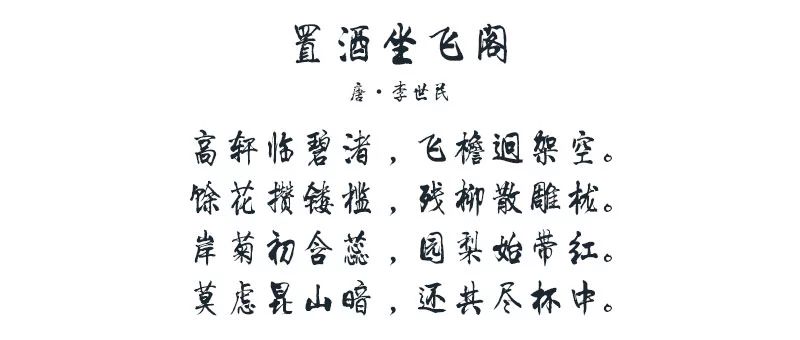 置酒坐飞阁
唐·李世民
高轩临碧渚，飞檐迥架空。
馀花攒镂槛，残柳散雕栊。
岸菊初含蕊，园梨始带红。
莫虑昆山暗，还共尽杯中。